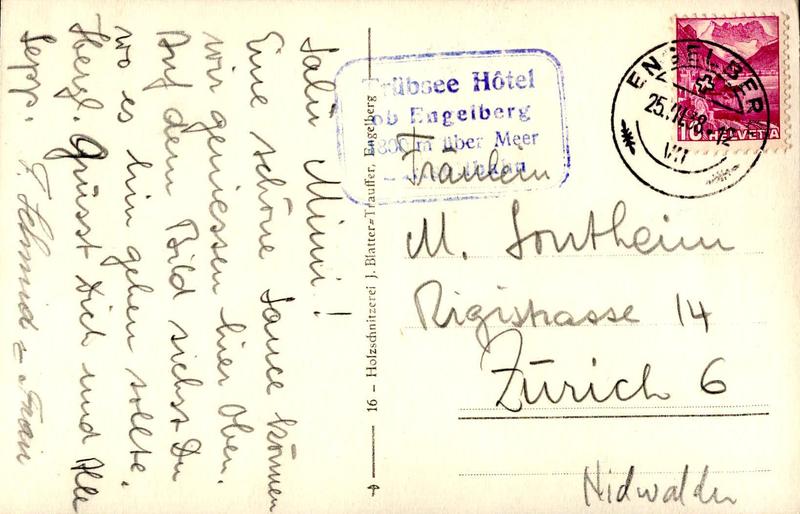 Salü Minni!
Eine schöne Sauce können
wir geniessen hier oben.
Auf dem Bild siehst Du
wo es hin gehen sollte.
Herzl. Grüsst Dich und Alle
Sepp. F. Schmid u. Frau
16 – Holzschnitzerei J. Blatter-Trauffer, Engelberg
Trübsee Hôtel
ob Engelberg
1800 m über Meer
ENGELBERG
VII
10 HELVETIA
Fräulein
M. Sontheim
Rigistrasse 14
Zürich 6
Nidwalden